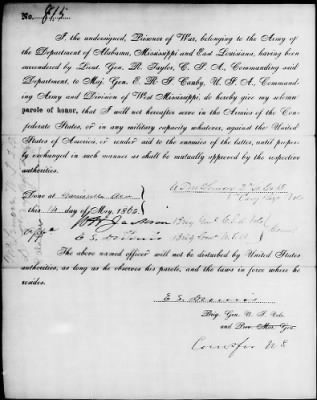 No. 815
I, the undersigned, Prisoner of War, belonging to the Army of
the Department of Alabama, Mississippi and East Louisiana, having been
surrendered by Lieut. Gen. R. Taylor, C. S. A., Commanding said
Department, to Maj. Gen. E. R. S. Canby, U. S. A., Command-
ing Army and Division of West Mississippi, do hereby give my solemn
parole of honor, that I will not hereafter serve in the Armies of the Con-
federate States, or in any military capacity whatever, against the United
States of America, or render aid to the enemies of the latter, until prop-
erly exchanged in such manner as shall be mutually approved by the respective
authorities.
Done at Gainesville Ala
this 14 day of May, 1865.
W H Jackson Brig Genl C.S.A
E S Dennis Brig Genl
The above named officer will not be disturbed by United States
authorities, as long as he observes his parole, and the laws in force where he
resides.
E S Dennis
Brig. Gen. U. S. Vols.
and
U S